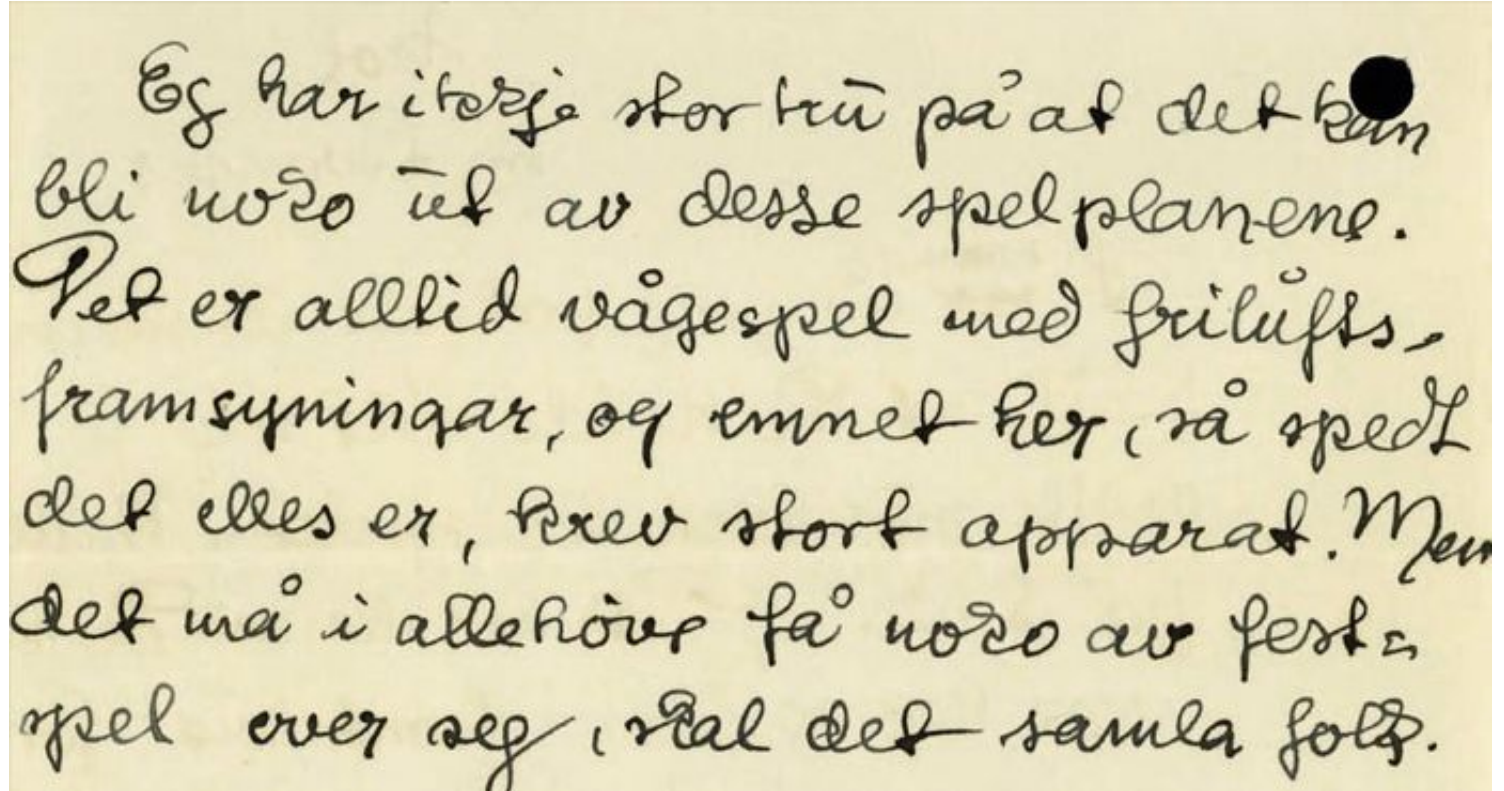 Eg har ikkje stor tru på at det kan
bli noko ut av desse spelplanene.
Det er alltid vågespel med frilufts-
framsyningar, og emnet her, så spedt
det elles er, krev stort apparat. Men
det må i allehöve få noko av fest=
spel over seg, skal det samla folk.